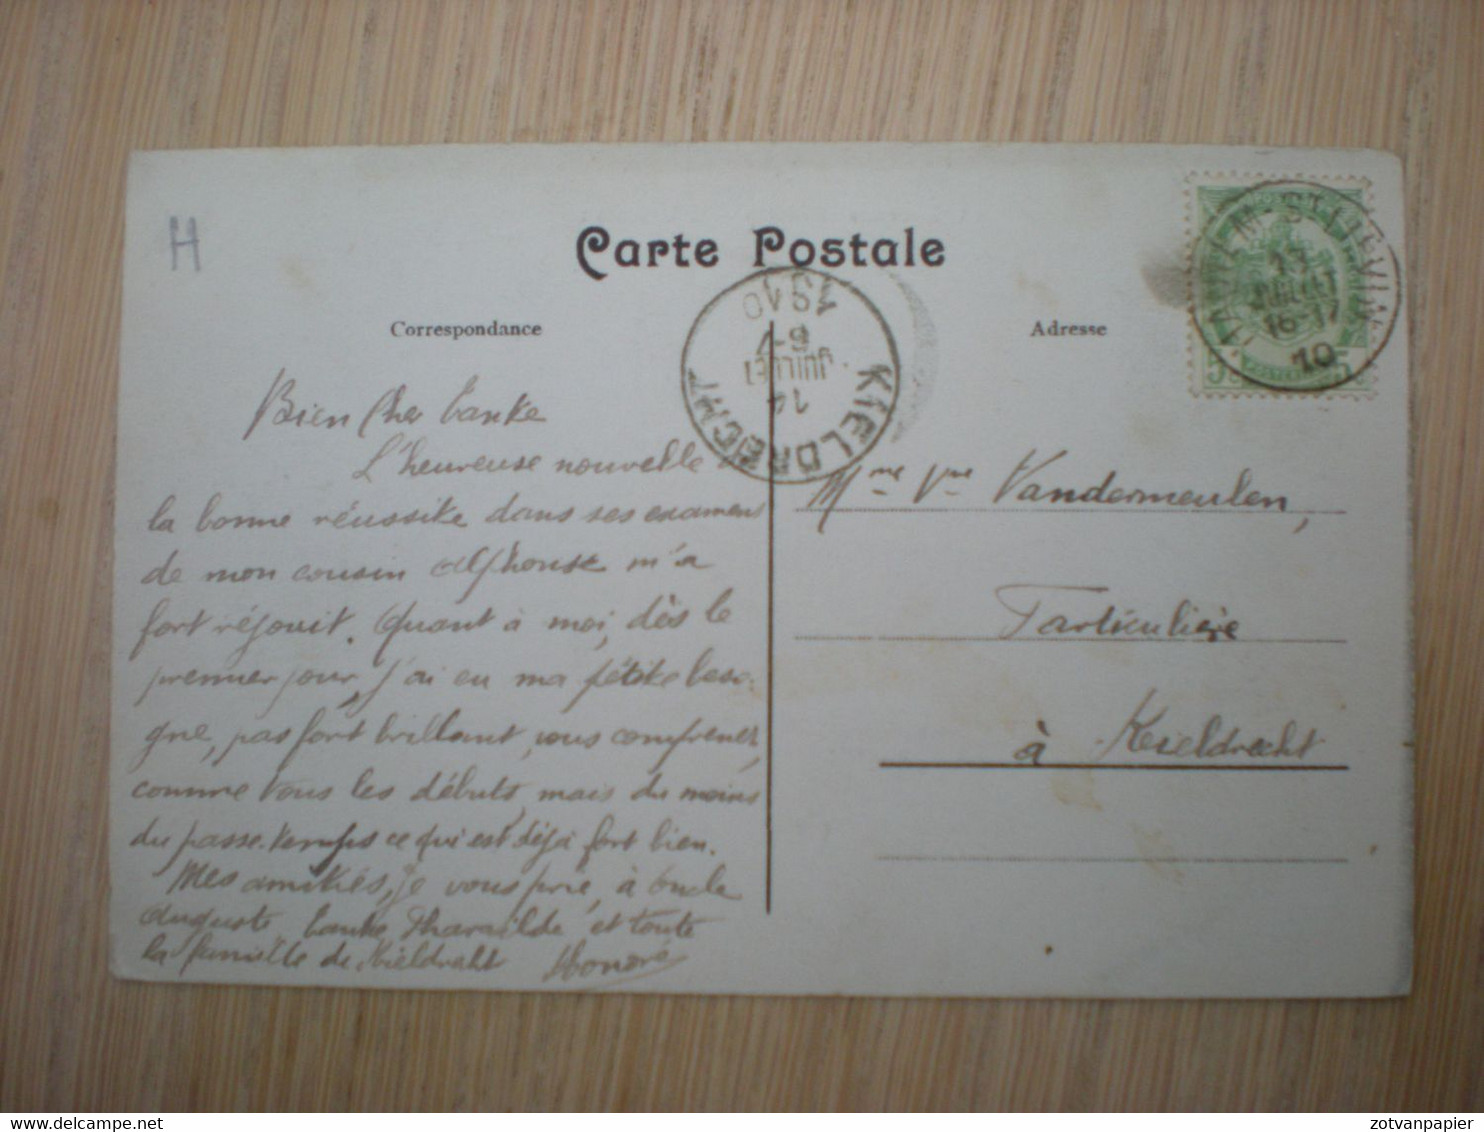 H
Carte Postale
Correspondance
Adresse
HAUTEM-ST-LIÉVIN
13
JUILLET
16-17
10
5
5
KIELDRECHT
14
JUILLET
6-7
1910
Bien Cher tante
L'heureuse nouvelle
la bonne réussite dans ses examens
de mon cousin Alphonse m'a
fort réjouit. Quant à moi, dès le
premier jour, j'ai eu ma petite beso-
gne, pas fort brillant, vous comprenez,
comme tous les débuts, mais du moins
du passe-temps ce qui est déjà fort bien.
Mes amitiés, je vous prie, à oncle
Auguste, tante Pharaïlde et toute
la famille de Kieldrecht Honoré
Mme Vve Vandermeulen,
Particulière
à Kieldrecht
delcampe.net
zotvanpapier